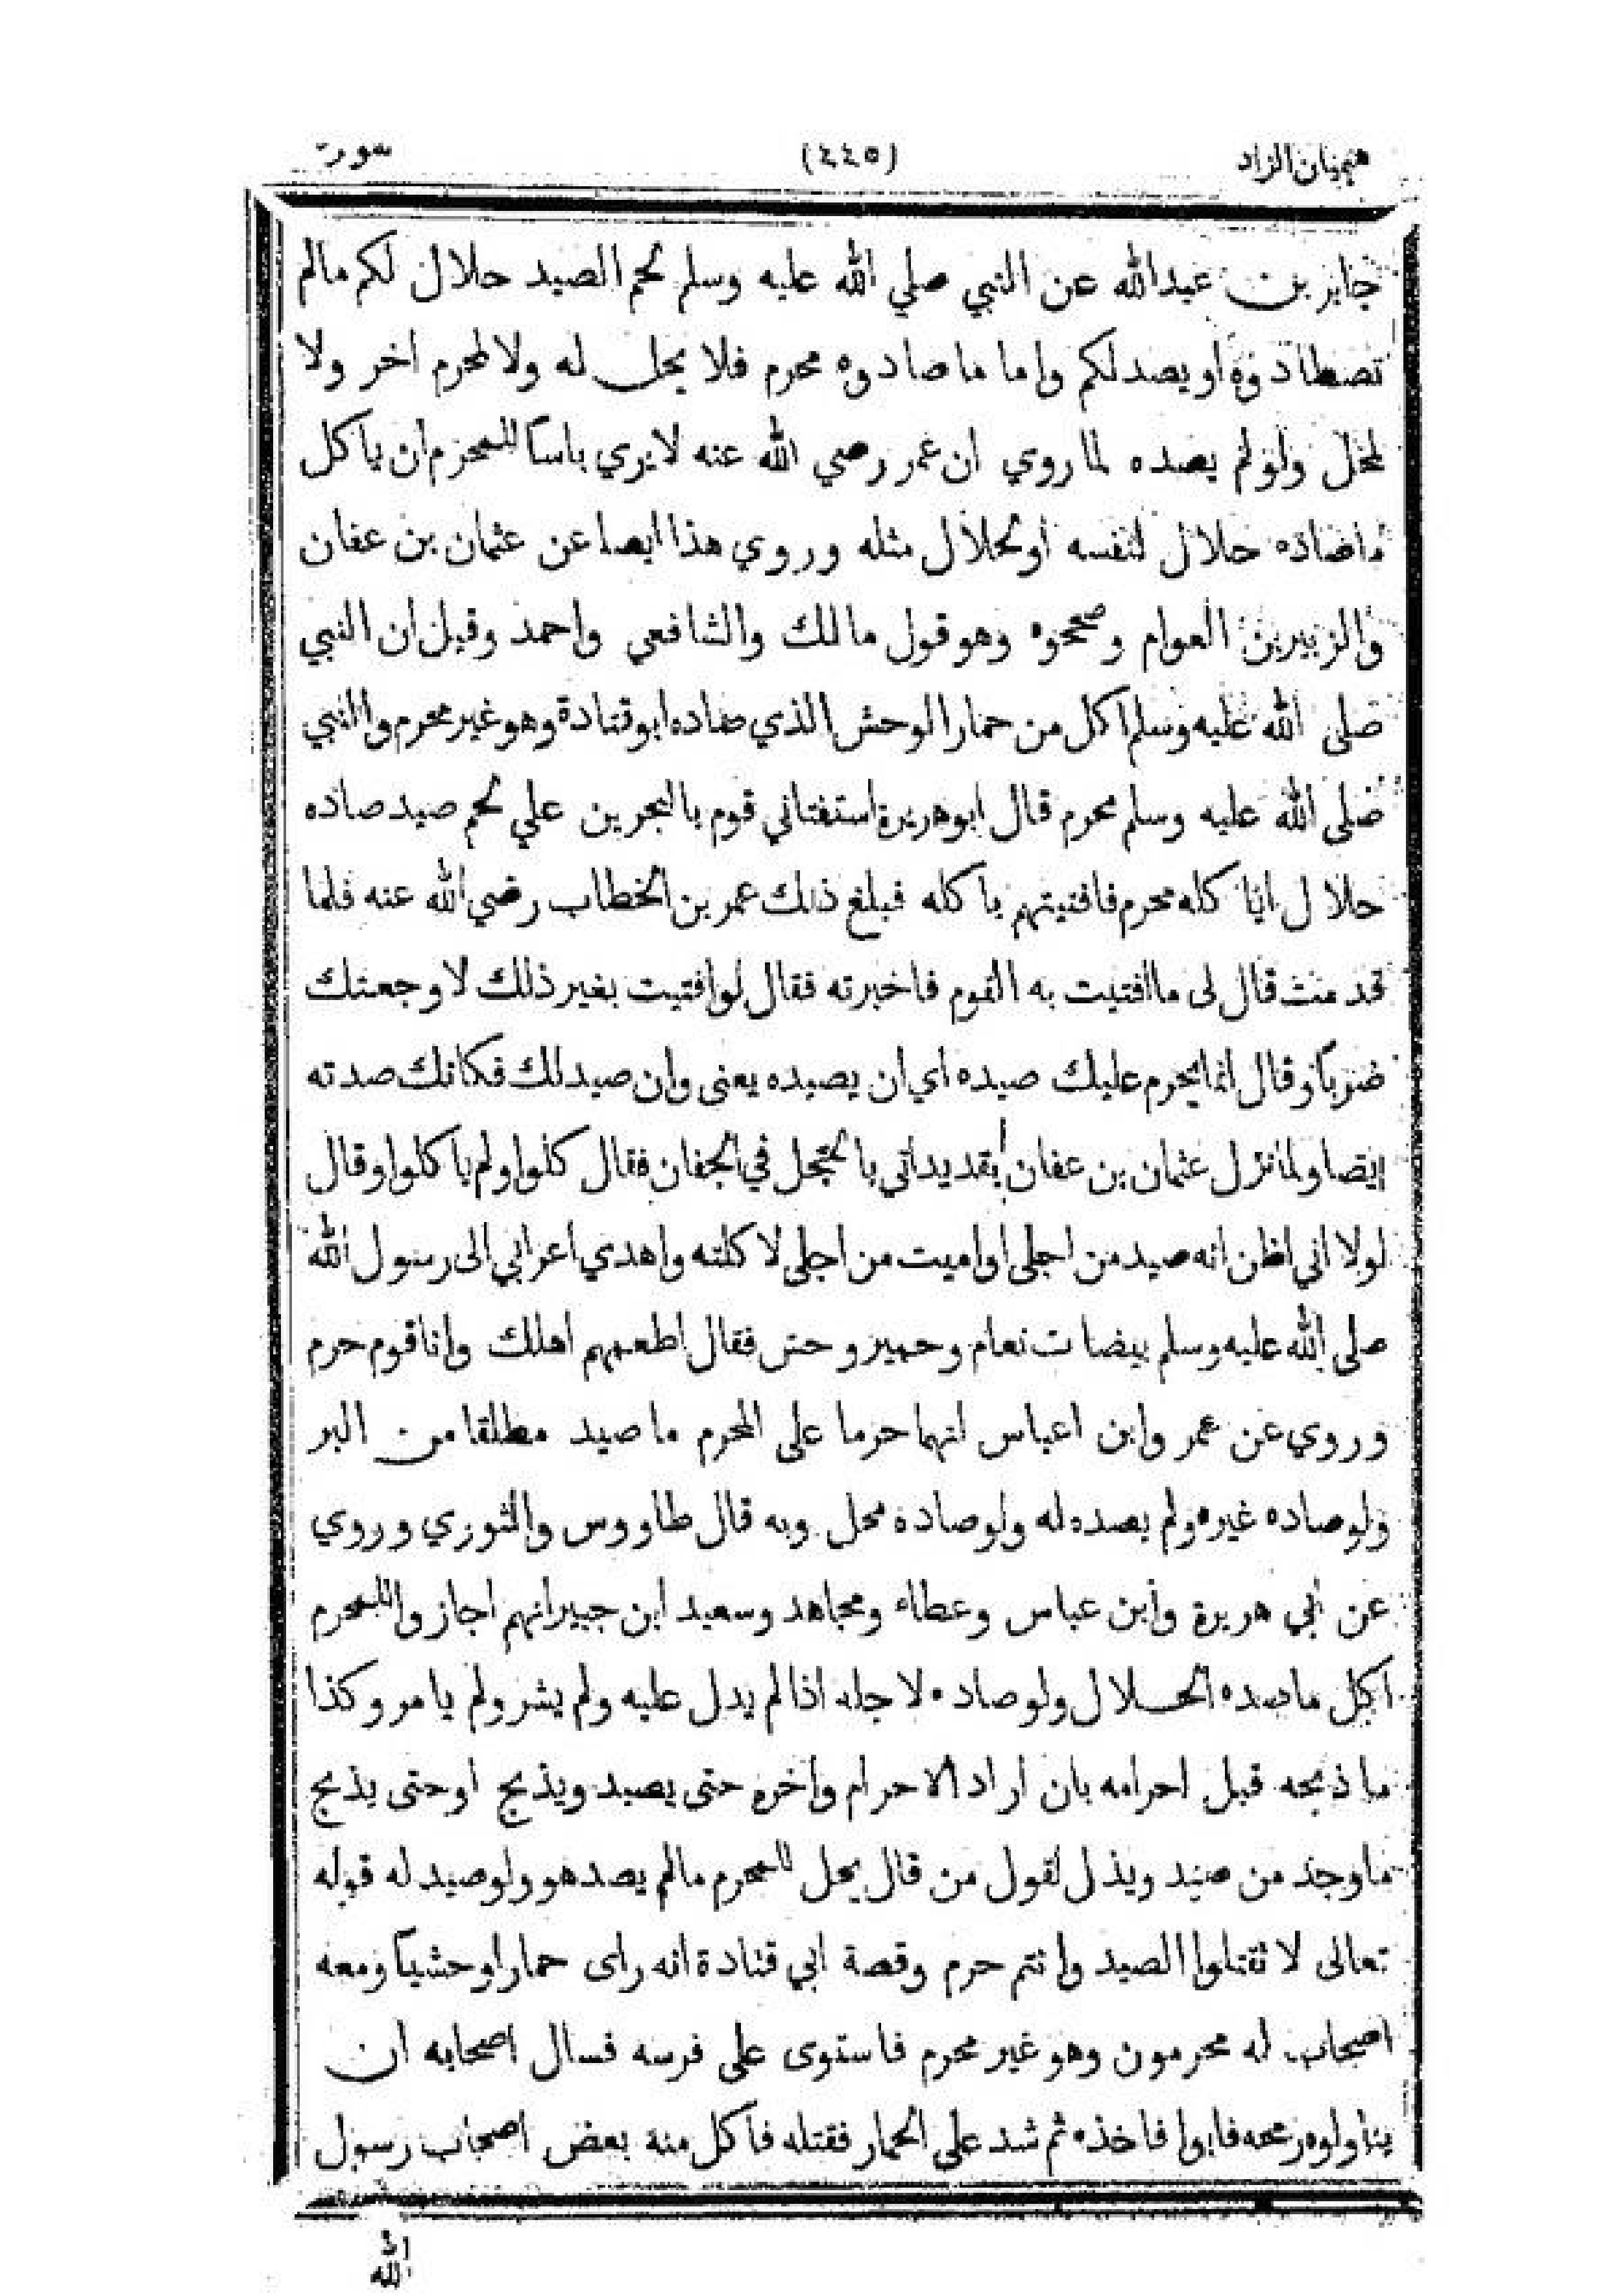 هيميان الزاد (٤٤٥) سورة
جابر بن عبدالله عن النبي صلي الله عليه وسلم لحم الصيد حلال لكم مالم
تصطادوه او يصد لكم واما ما صادوه محرم فلا يحل له ولا لمحرم اخر ولا
لمحل ولو لم يصده لما روي ان عمر رضي الله عنه لا يري باسا للمحرم ان ياكل
ما صاده حلال لنفسه او لحلال مثله وروي هذا ايضا عن عثمان بن عفان
والزبير بن العوام وصححوه وهو قول مالك والشافعي واحمد وقيل ان النبي
صلى الله عليه وسلم اكل من حمار الوحش الذي صاده ابو قتادة وهو غير محرم والنبي
صلى الله عليه وسلم محرم قال ابو هريرة استفتاني قوم بالبحرين علي لحم صيد صاده
حلال اياكله محرم فافتيتهم باكله فبلغ ذلك عمر بن الخطاب رضي الله عنه فلما
قدمت قال لى ما افتيت به القوم فاخبرته فقال لو افتيت بغير ذلك لاوجعتك
ضربا وقال انما يحرم عليك صيده اي ان يصيده يعنى وان صيد لك فكانك صدته
ايضا ولما نزل عثمان بن عفان بقديد اتي بالحجل في الجفان فقال كلوا ولم ياكلوا وقال
لولا اني اظن انه صيد من اجلى او اميت من اجلى لاكلته واهدي اعرابي الى رسول الله
صلى الله عليه وسلم بيضات نعام وحمير وحش فقال اطعمهم اهلك وانا قوم حرم
وروي عن عمر وابن اعباس انهما حرما على المحرم ما صيد مطلقا من البر
ولو صاده غيره ولم يصده له ولو صاده محل وبه قال طاووس والثوري وروي
عن ابي هريرة وابن عباس وعطاء ومجاهد وسعيد ابن جبير انهم اجازوا للمحرم
اكل ما صده الحلال ولو صاده لاجله اذا لم يدل عليه ولم يشر ولم يامر وكذا
ما ذبحه قبل احرامه بان اراد الاحرام واخره حتى يصيد ويذبح او حتى يذبح
ما وجد من صيد ويدل لقول من قال يحل للمحرم مالم يصد هو ولو صيد له قوله
تعالى لا تقتلوا الصيد وانتم حرم وقصة ابي قتادة انه راى حمارا وحشيا ومعه
اصحاب له محرمون وهو غير محرم فاستوى على فرسه فسال اصحابه ان
يناولوه رمحه فابوا فاخذه ثم شد على الحمار فقتله فاكل منه بعض اصحاب رسول
الله